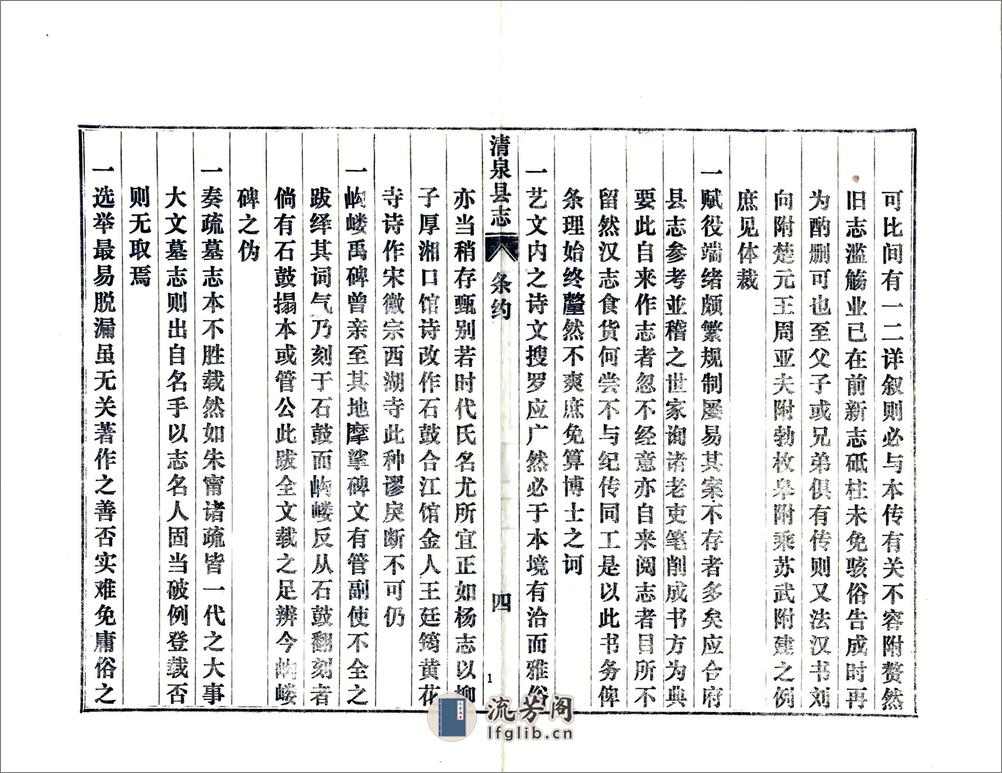 可比间有一二详叙则必与本传有关不容附赘然
旧志滥觞业已在前新志砥柱未免骇俗告成时再
为酌删可也至父子或兄弟俱有传则又法汉书刘
向附楚元王周亚夫附勃枚皋附乘苏武附建之例
庶见体裁
一赋役端绪颇繁规制屡易其案不存者多矣应合府
县志参考並稽之世家询诸老吏笔削成书方为典
要此自来作志者忽不经意亦自来阅志者目所不
留然汉志食货何尝不与纪传同工是以此书务俾
条理始终釐然不爽庶免算博士之诃
一艺文内之诗文搜罗应广然必于本境有洽而雅俗
清泉县志 条约 四 1
亦当稍存甄别若时代氏名尤所宜正如杨志以柳
子厚湘口馆诗改作石鼓合江馆金人王廷筠黄花
寺诗作宋徽宗西湖寺此种谬戾断不可仍
一岣嵝禹碑曾亲至其地摩挲碑文有管副使不全之
跋绎其词气乃刻于石鼓而岣嵝反从石鼓翻刻者
倘有石鼓搨本或管公此跋全文载之足辨今岣嵝
碑之伪
一奏疏墓志本不胜载然如朱甯诸疏皆一代之大事
大文墓志则出自名手以志名人固当破例登载否
则无取焉
一选举最易脱漏虽无关著作之善否实难免庸俗之
流芳阁
lfglib.cn